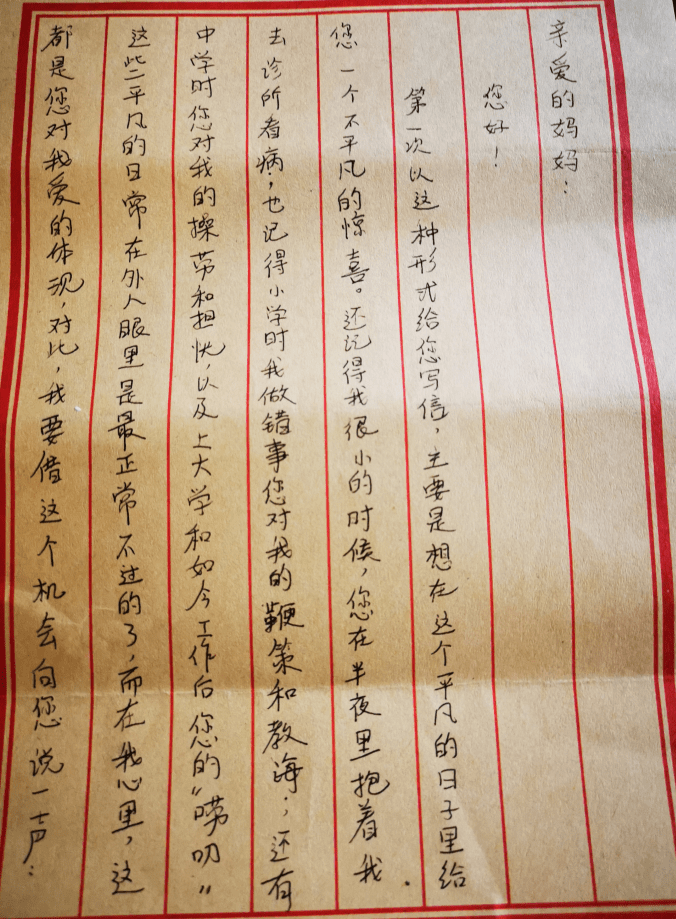 亲爱的妈妈：
您好！
第一次以这种形式给您写信，主要是想在这个平凡的日子里给
您一个不平凡的惊喜。还记得我很小的时候，您在半夜里抱着我
去诊所看病；也记得小学时我做错事您对我的鞭策和教海；还有
中学时您对我的操劳和担忧，以及上大学和如今工作后您的“唠叨”
这些平凡的日常在外人眼里是最正常不过的了，而在我心里，这
都是您对我爱的体现，对此，我要借这个机会向您说一声：